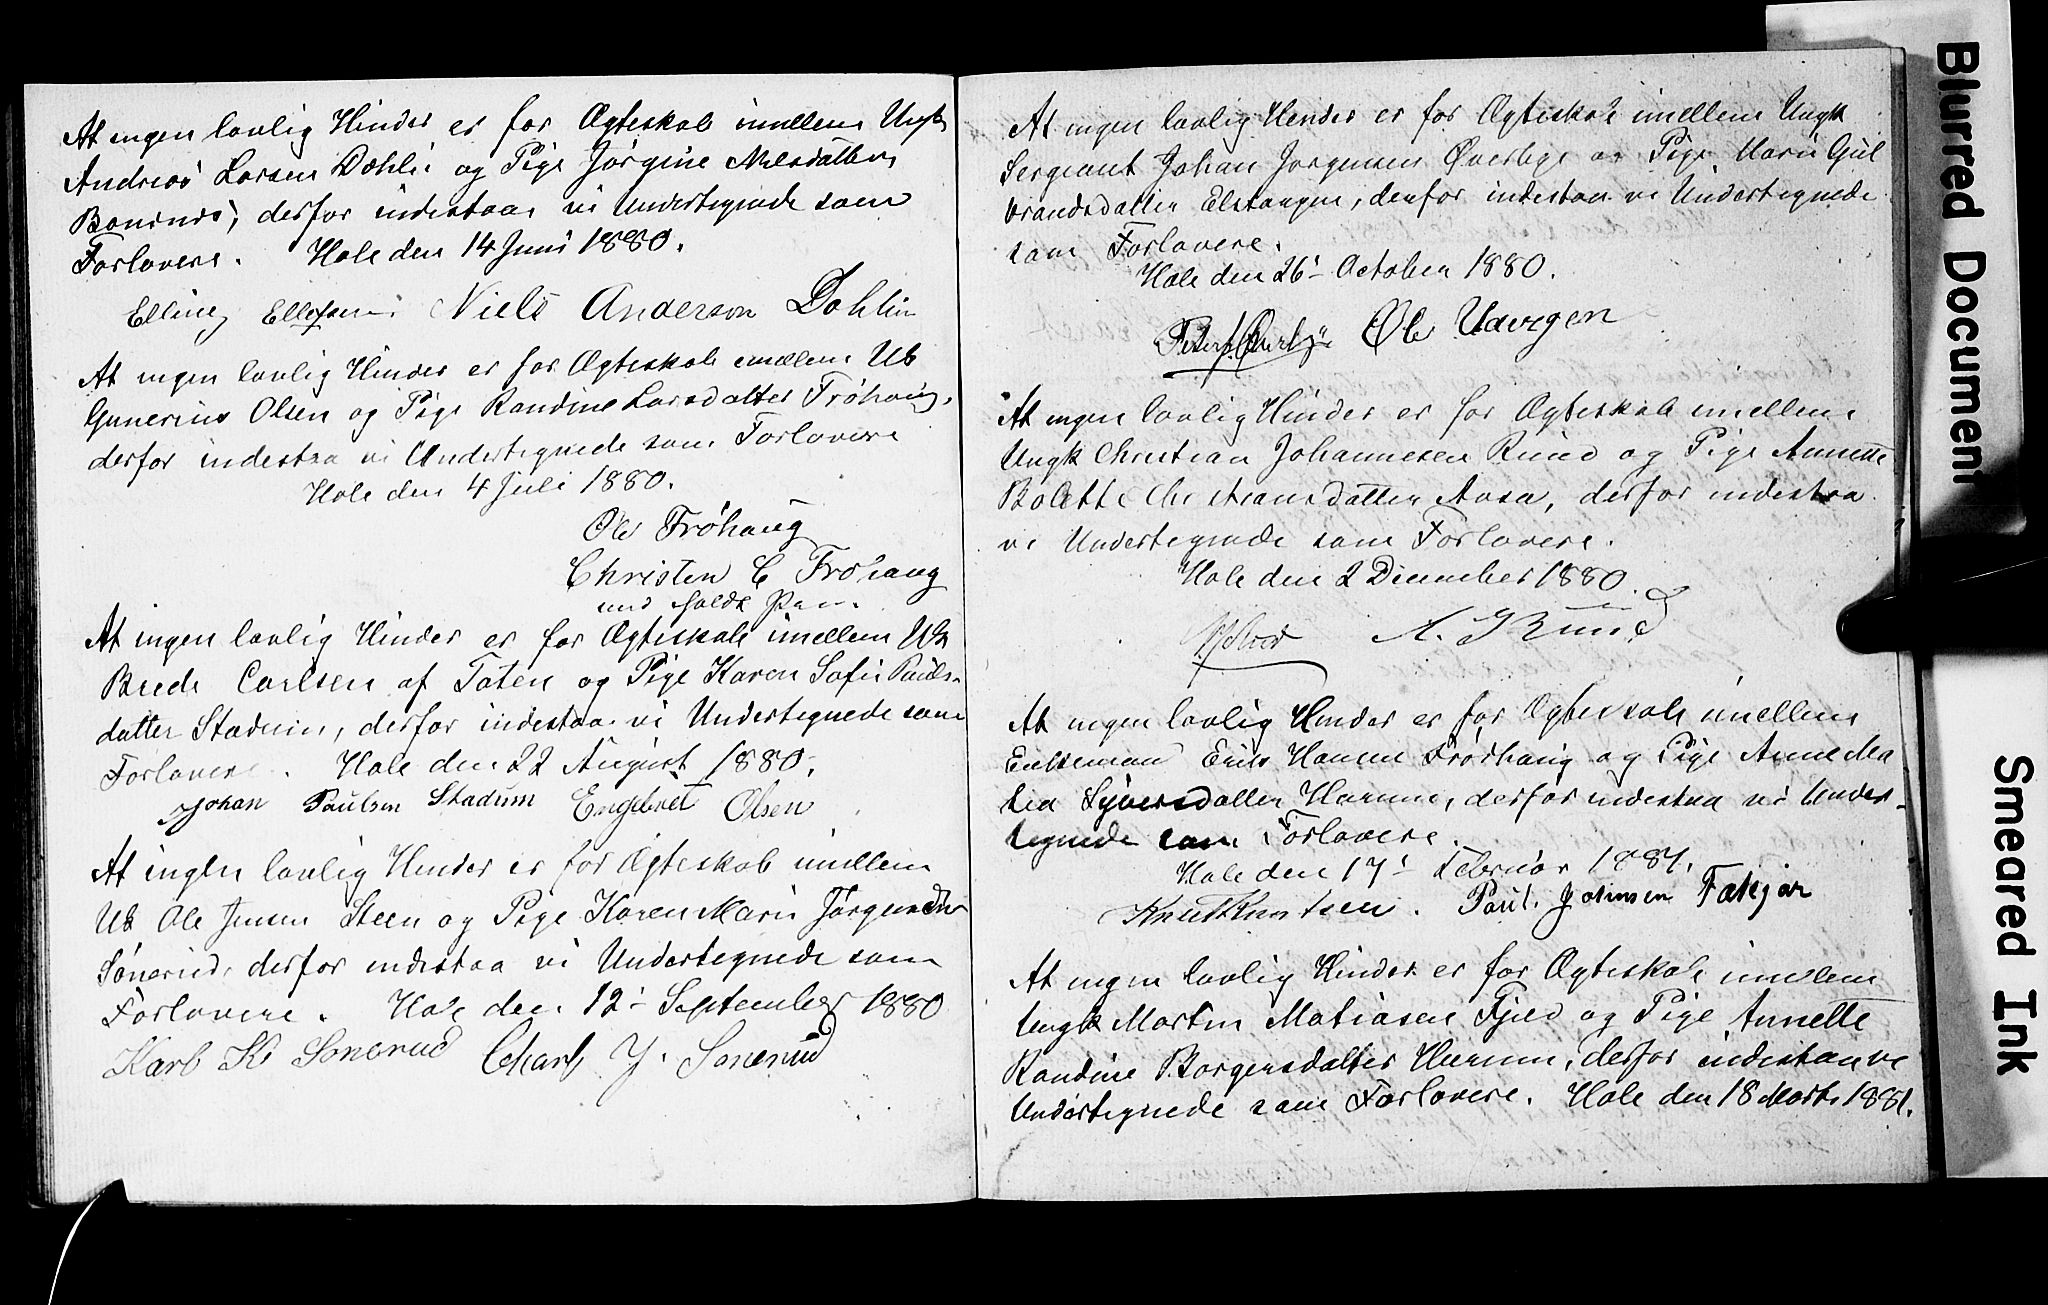 At ingen lovlig Hinder er for Ægteskab imellem Ungk
Andreas Larsen Dæhlie og Pige Jørgine Nilsdatter
derfor indestaar vi Undertegnede som
Forlovere. Hole den 14 Juni 1880.
Elling Ellefsen Niels Anderson Dohlin
At ingen lovlig Hinder er for Ægteskab imellem Uk
Gunerius Olsen og Pige Randine Larsdatter Frøhaug,
derfor indestaa vi Undertegnede som Forlovere
Hole den 4 Juli 1880.
Ole Frøhaug
Christen C Frøhaug
med holdt Pen.
At ingen lovlig Hinder er for Ægteskab imellem Uk
Brede Carlsen af Toten og Pige Karen Sofie Pauls-
datter Stadum, derfor indestaa vi Undertegnede som
Forlovere. Hole den 22 August 1880.
Johan Paulsen Stadum Engebret Olsen
At ingen lovlig Hinder er for Ægteskab imellem
Uk Ole Jensen Steen og Pige Karen Marie Jørgensdtr
Sønerud, derfor indestaa vi Undertegnede som
Forlovere. Hole den 12' September 1880
Karl K Sønerud Charl J. Sønerud
At ingen lovlig Hinder er for Ægteskab imellem Ungk
Sergeant Johan Jørgensen Øverbye og Pige Marie Gul
brandsdatter Elstangen, derfor indestaa vi Undertegnede
som Forlovere.
Hole den 26' October 1880.
Ole
At ingen lovlig Hinder er for Ægteskab imellem
Ungk Christian Johannesen Rund og Pige Annette
Bolette Christiansdatter Aasa, derfor indestaa
vi Undertegnede som Forlovere.
Hole den 2 December 1880.
A. Rund
At ingen lovlig Hinder er for Ægteskab imellem
Enkemand Erik Hansen Frøshaug og Pige Anne Ma
tea Syversdatter Harum, derfor indestaa vi Under-
tegnede som Forlovere.
Hole den 17' Februar 1881.
Knut Knutsen. Paul Johnsen Fækjær
At ingen lovlig Hinder er for Ægteskab imellem
Ungk Martin Matiasen Fjeld og Pige Annette
Randine Borgersdatter Hurum, derfor indestaa vi
Undertegnede som Forlovere. Hole den 18 Marts 1881.
Blurred Document
Smeared Ink